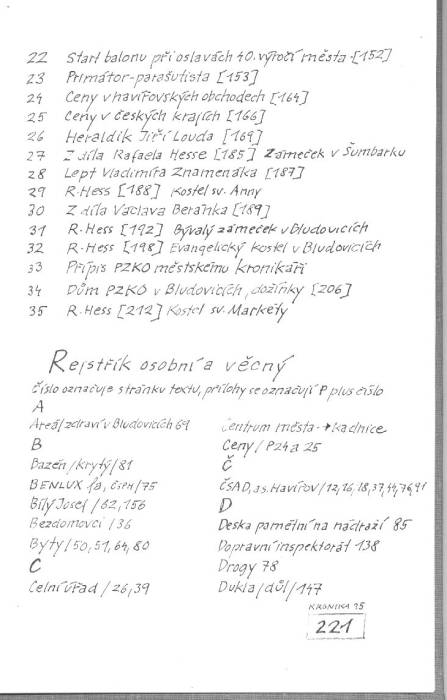 22 Start balonu při oslavách 40. výročí města [152]
23 Primátor-parašutista [153]
24 Ceny v havířovských obchodech [164]
25 Ceny v českých krajích [166]
26 Heraldik Jiří Louda [169]
27 Z díla Rafaela Hesse [185] Zámeček v Šumbarku
28 Lept Vladimíra Znamenáka [187]
29 R. Hess [188] Kostel sv. Anny
30 Z díla Václava Beránka [189]
31 R. Hess [192] Bývalý zámeček v Bludovicích
32 R. Hess [198] Evangelický kostel v Bludovicích
33 Přípis PZKO městskému kronikáři
34 Dům PZKO v Bludovicích, dožínky [206]
35 R. Hess [212] Kostel sv. Markéty
Rejstřík osobní a věcný
číslo označuje stránku textu, přílohy se označují P plus číslo
A
Areál zdraví v Bludovicích 69
B
Bazén/krytý/81
BENLUX fa, /75
Bílý Josef /62, 156
Bezdomovci /36
Byty/50, 51, 64, 80
C
Celní úřad /26, 39
Centrum města → kadnice
Ceny/P24 a 25
Č
ČSAD, a.s. Havířov/12, 16, 18, 37, 44, 76, 91
D
Deska pamětní na nádraží 85
Dopravní inspektorát 138
Drogy 78
Dukla/důl/147
KRONIKA 95
221